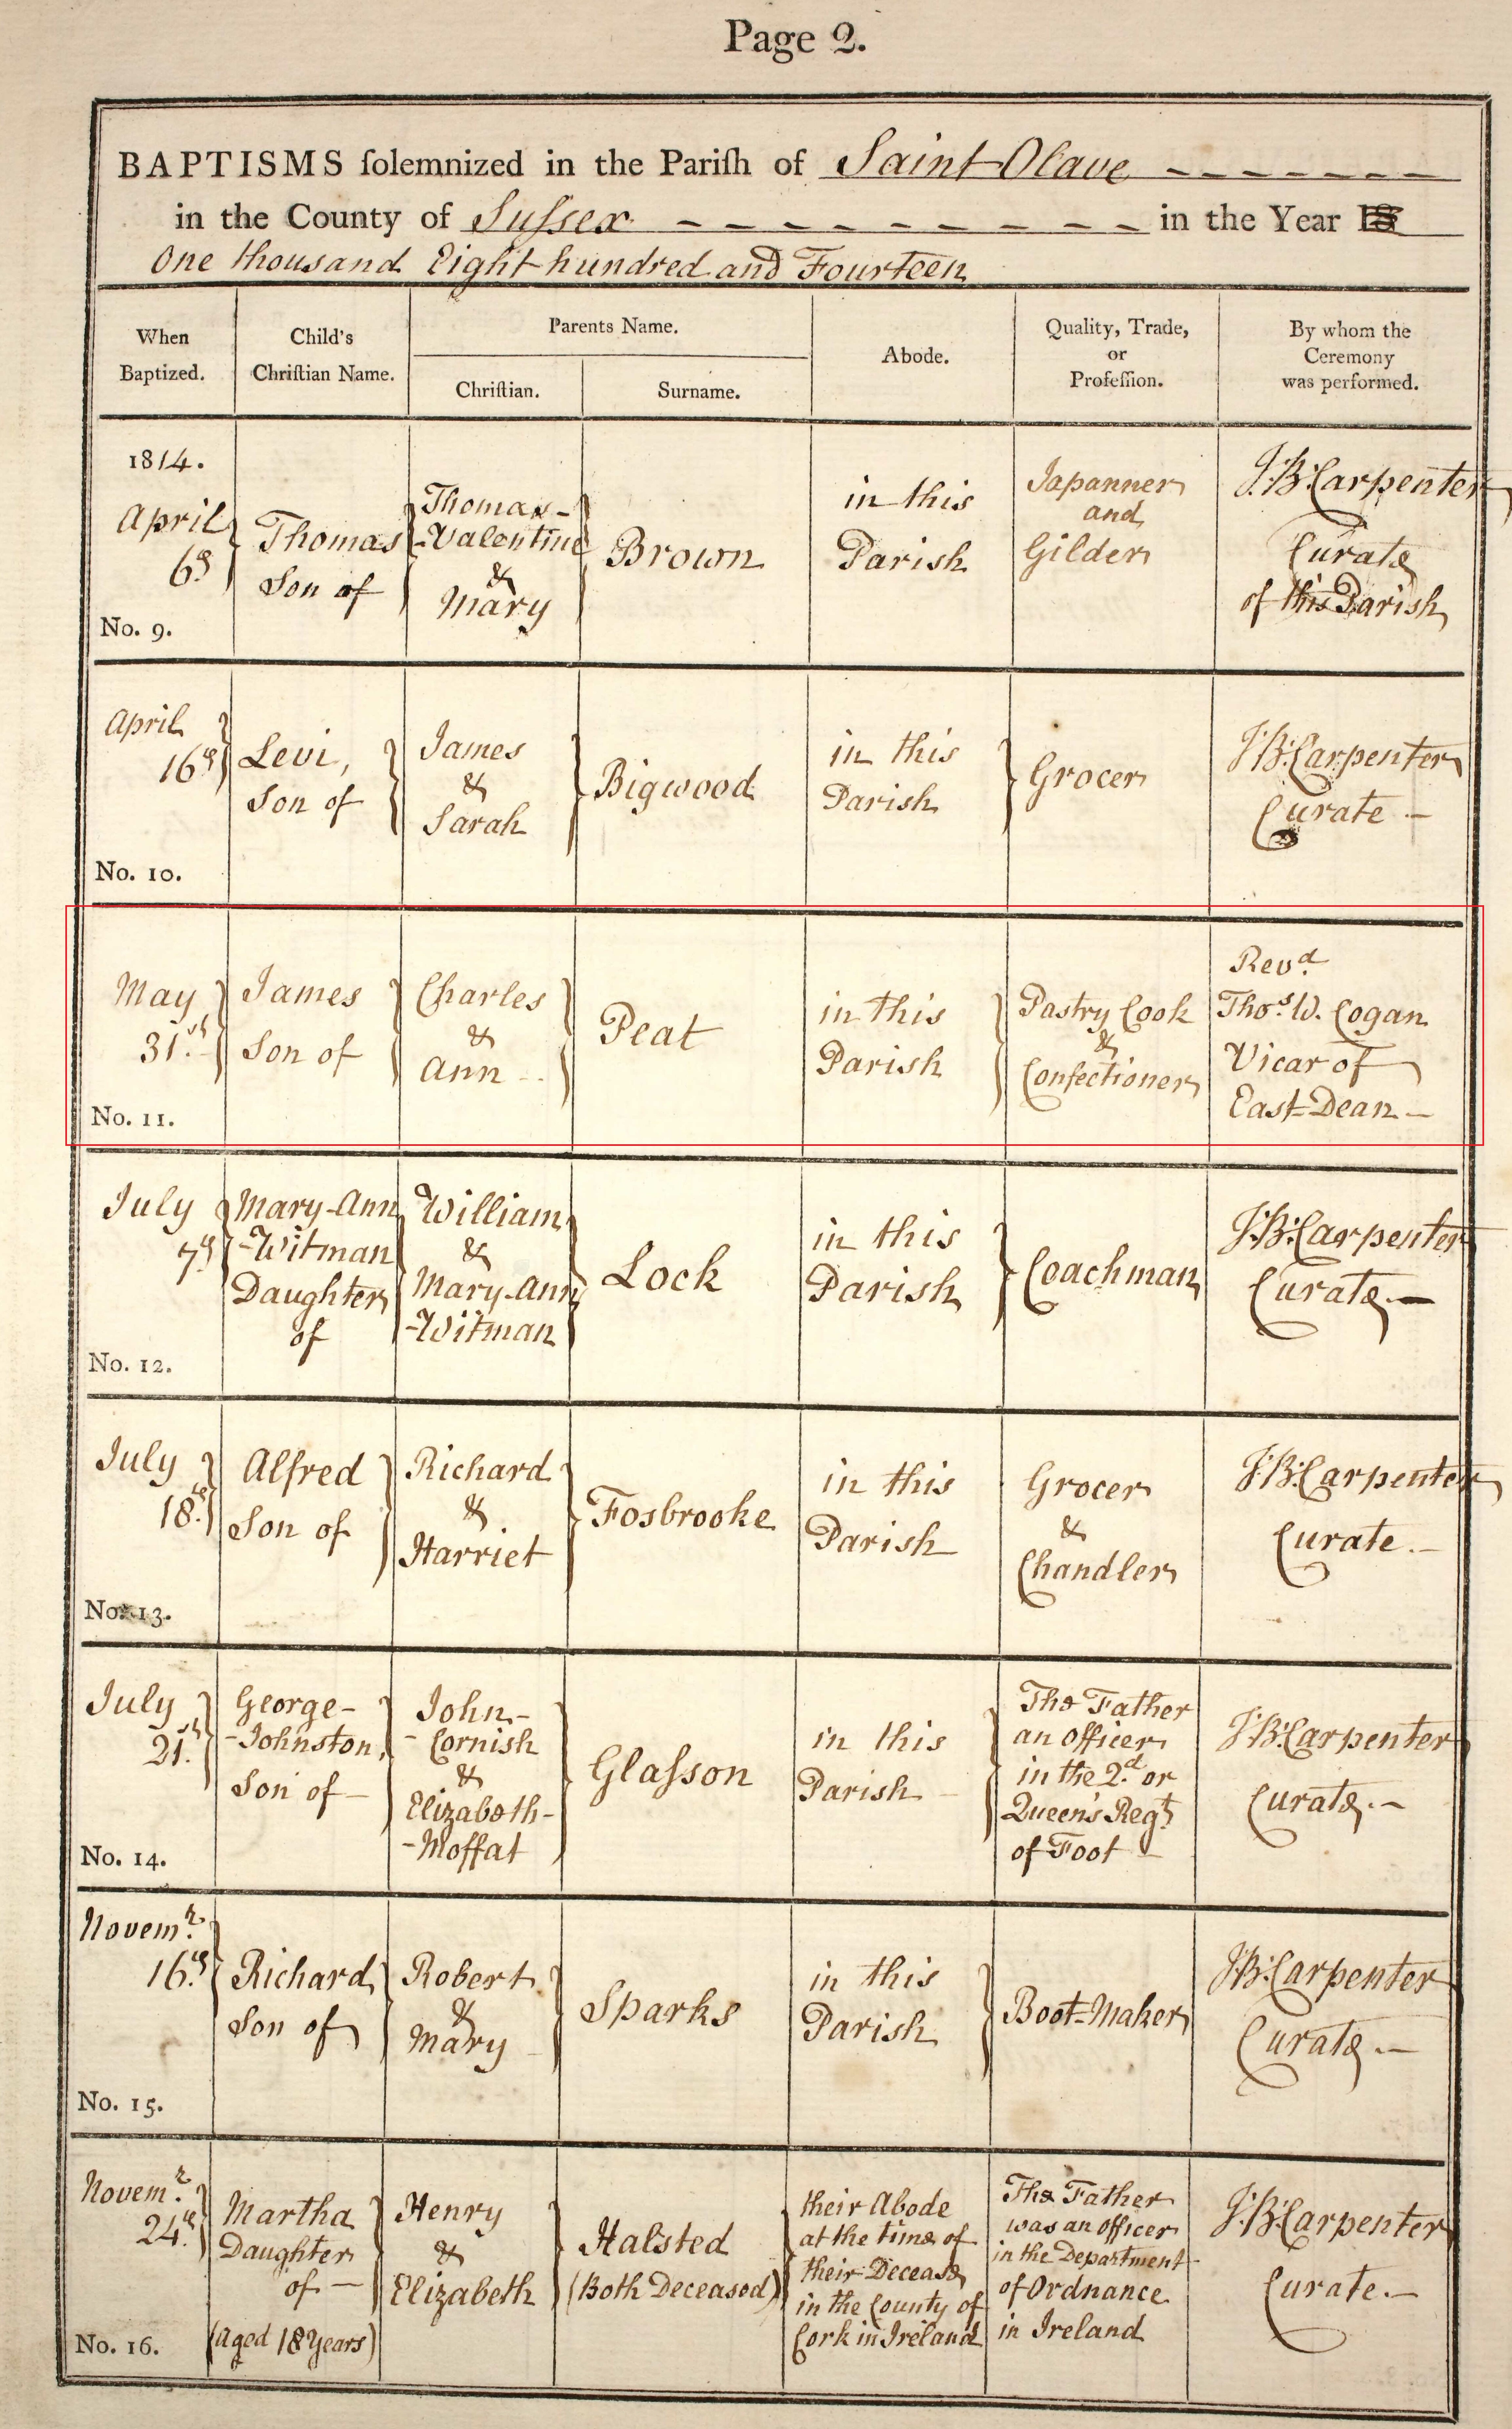 Page 2.
BAPTISMS ſolemnized in the Pariſh of Saint Olave
in the County of Sussex in the Year
One thousand Eight hundred and Fourteen
When
Baptized.
Child's
Chriſtian Name.
Parents Name.
Chriſtian.
Surname.
Abode.
Quality, Trade,
or
Profeſſion.
By whom the
Ceremony
was performed.
1814.
April
6th
No. 9.
Thomas
Son of
Thomas-
-Valentine
&
Mary
Brown
in this
Parish
Japanner
and
Gilder
J.B. Carpenter
Curate
of this Parish
April
16th
No. 10.
Levi,
Son of
James
&
Sarah
Bigwood
in this
Parish
Grocer
J.B. Carpenter
Curate —
May
31st
No. 11.
James
Son of
Charles
&
Ann
Peat
in this
Parish
Pastry Cook
&
Confectioner
Revd
Thos W. Cogan
Vicar of
East-Dean —
July
7th
No. 12.
Mary-Ann
-Witman
Daughter
of
William
&
Mary-Ann
-Witman
Lock
in this
Parish
Coachman
J.B. Carpenter
Curate. —
July
18th
No. 13.
Alfred
Son of
Richard
&
Harriet
Fosbrooke
in this
Parish
Grocer
&
Chandler
J.B. Carpenter
Curate. —
July
21st
No. 14.
George-
-Johnston,
Son of —
John-
-Cornish
&
Elizabeth-
-Moffat
Glaſson
in this
Parish
The Father
an officer
in the 2d or
Queen's Regt
of Foot
J.B. Carpenter
Curate. —
Novemr
16th
No. 15.
Richard
Son of
Robert
&
Mary
Sparks
in this
Parish
Boot-Maker
J.B. Carpenter
Curate. —
Novemr
24th
No. 16.
Martha
Daughter
of —
(aged 18 Years)
Henry
&
Elizabeth
Halsted
(Both Deceased)
their Abode
at the time of
their Decease
in the County of
Cork in Ireland
The Father
was an officer
in the Department
of Ordnance
in Ireland
J.B. Carpenter
Curate. —